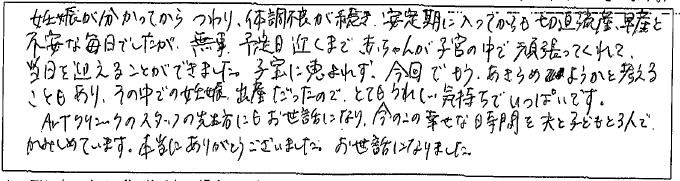 妊娠が分かってから つわり、体調不良が続き、安定期に入ってからも切迫流産、早産と
不安な毎日でしたが、無事 予定日近くまで 赤ちゃんが子宮の中で頑張ってくれて、
当日を迎えることができました。子宝に恵まれず、今回でもう、あきらめようかと考える
こともあり、その中での妊娠、出産だったので、とてもうれしい気持ちでいっぱいです。
ARTクリニックのスタッフの先生方にもお世話になり、今のこの幸せな時間を夫と子どもと3人で
かみしめています。本当にありがとうございました。お世話になりました。